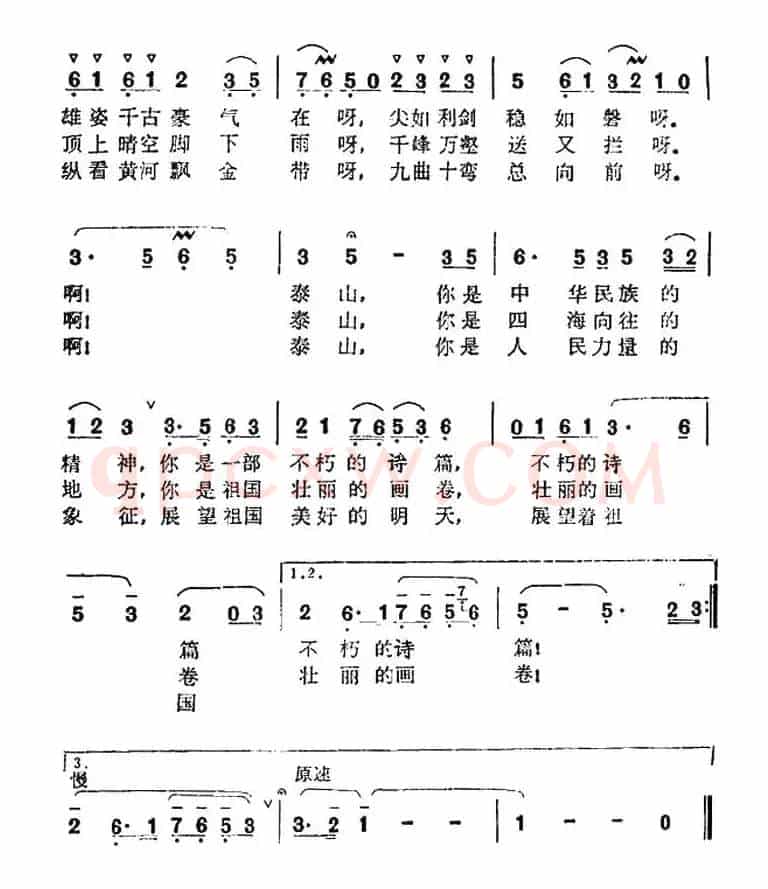 6 1 6 1 2 3 5 | 7 6 5 0 2 3 2 3 | 5 6 1 3 2 1 0 |
雄姿千古豪 气 在呀, 尖如利剑 稳 如 磐 呀。
顶上晴空脚 下 雨呀, 千峰万壑 送 又 拦 呀。
纵看黄河飘 金 带呀, 九曲十弯 总 向 前 呀。
3· 5 6 5 | 3 5 - 3 5 | 6· 5 3 5 3 2 |
啊! 泰山, 你是 中 华民族的
啊! 泰山, 你是 四 海向往的
啊! 泰山, 你是 人 民力量的
1 2 3 ∨ 3· 5 6 3 | 2 1 7 6 5 3 6 | 0 1 6 1 3· 6 |
精 神, 你 是一部 不朽 的 诗 篇, 不朽的诗
地 方, 你 是祖国 壮丽 的 画 卷, 壮丽的画
象 征, 展 望祖国 美好 的 明 天, 展望着祖
1.2.
5 3 2 0 3 | 2 6· 1 7 6 5 7 1 6 | 5 - 5· 2 3 :|
篇 不 朽 的诗 篇!
卷 壮 丽 的画 卷!
国
3.
慢 原速
2 6· 1 7 6 5 3 ∨ | 3· 2 1 - - | 1 - - 0 ||
qpcxw.COM